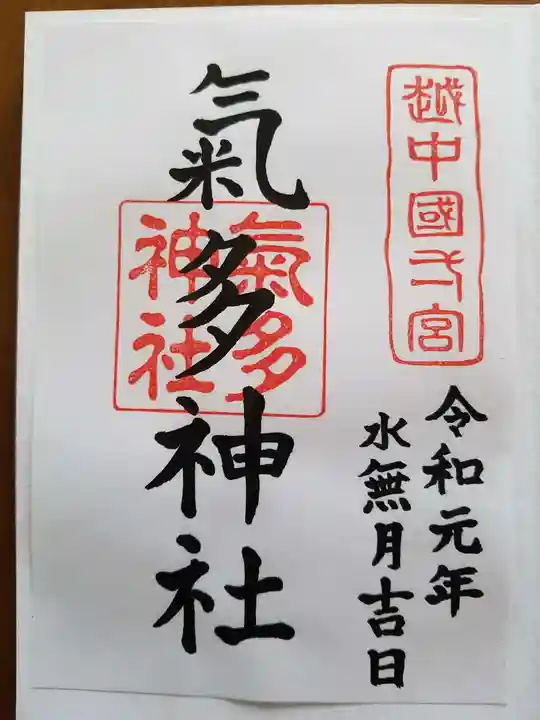 越中國弌宮
令和元年
水無月吉日
氣多神社
氣多
神社